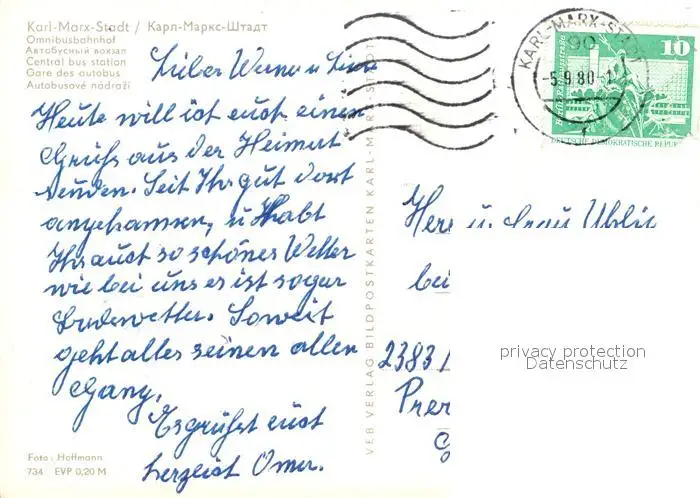 Karl-Marx-Stadt / Карл-Маркс-Штадт
Omnibusbahnhof
Автобусный вокзал
Central bus station
Gare des autobus
Autobusové nádraží
Lieber Werner u
Heute will ich euch einen
Gruß aus der Heimat
senden. Seit Ihr gut dort
angekommen, u Habt
Ihr auch so schönes Wetter
wie bei uns es ist sogar
Badewetter. Soweit
geht alles seinen allen
Gang.
Es grüßt euch
herzlich Oma.
Foto: Hoffmann
734 EVP 0,20 M
VEB VERLAG BILDPOSTKARTEN KARL-MARX-STADT
KARL-MARX-STADT
90
-5.9.80-
10
DEUTSCHE DEMOKRATISCHE REPUB
Herr u. Frau Uhlig
bei
2383
Prer
privacy protection
Datenschutz